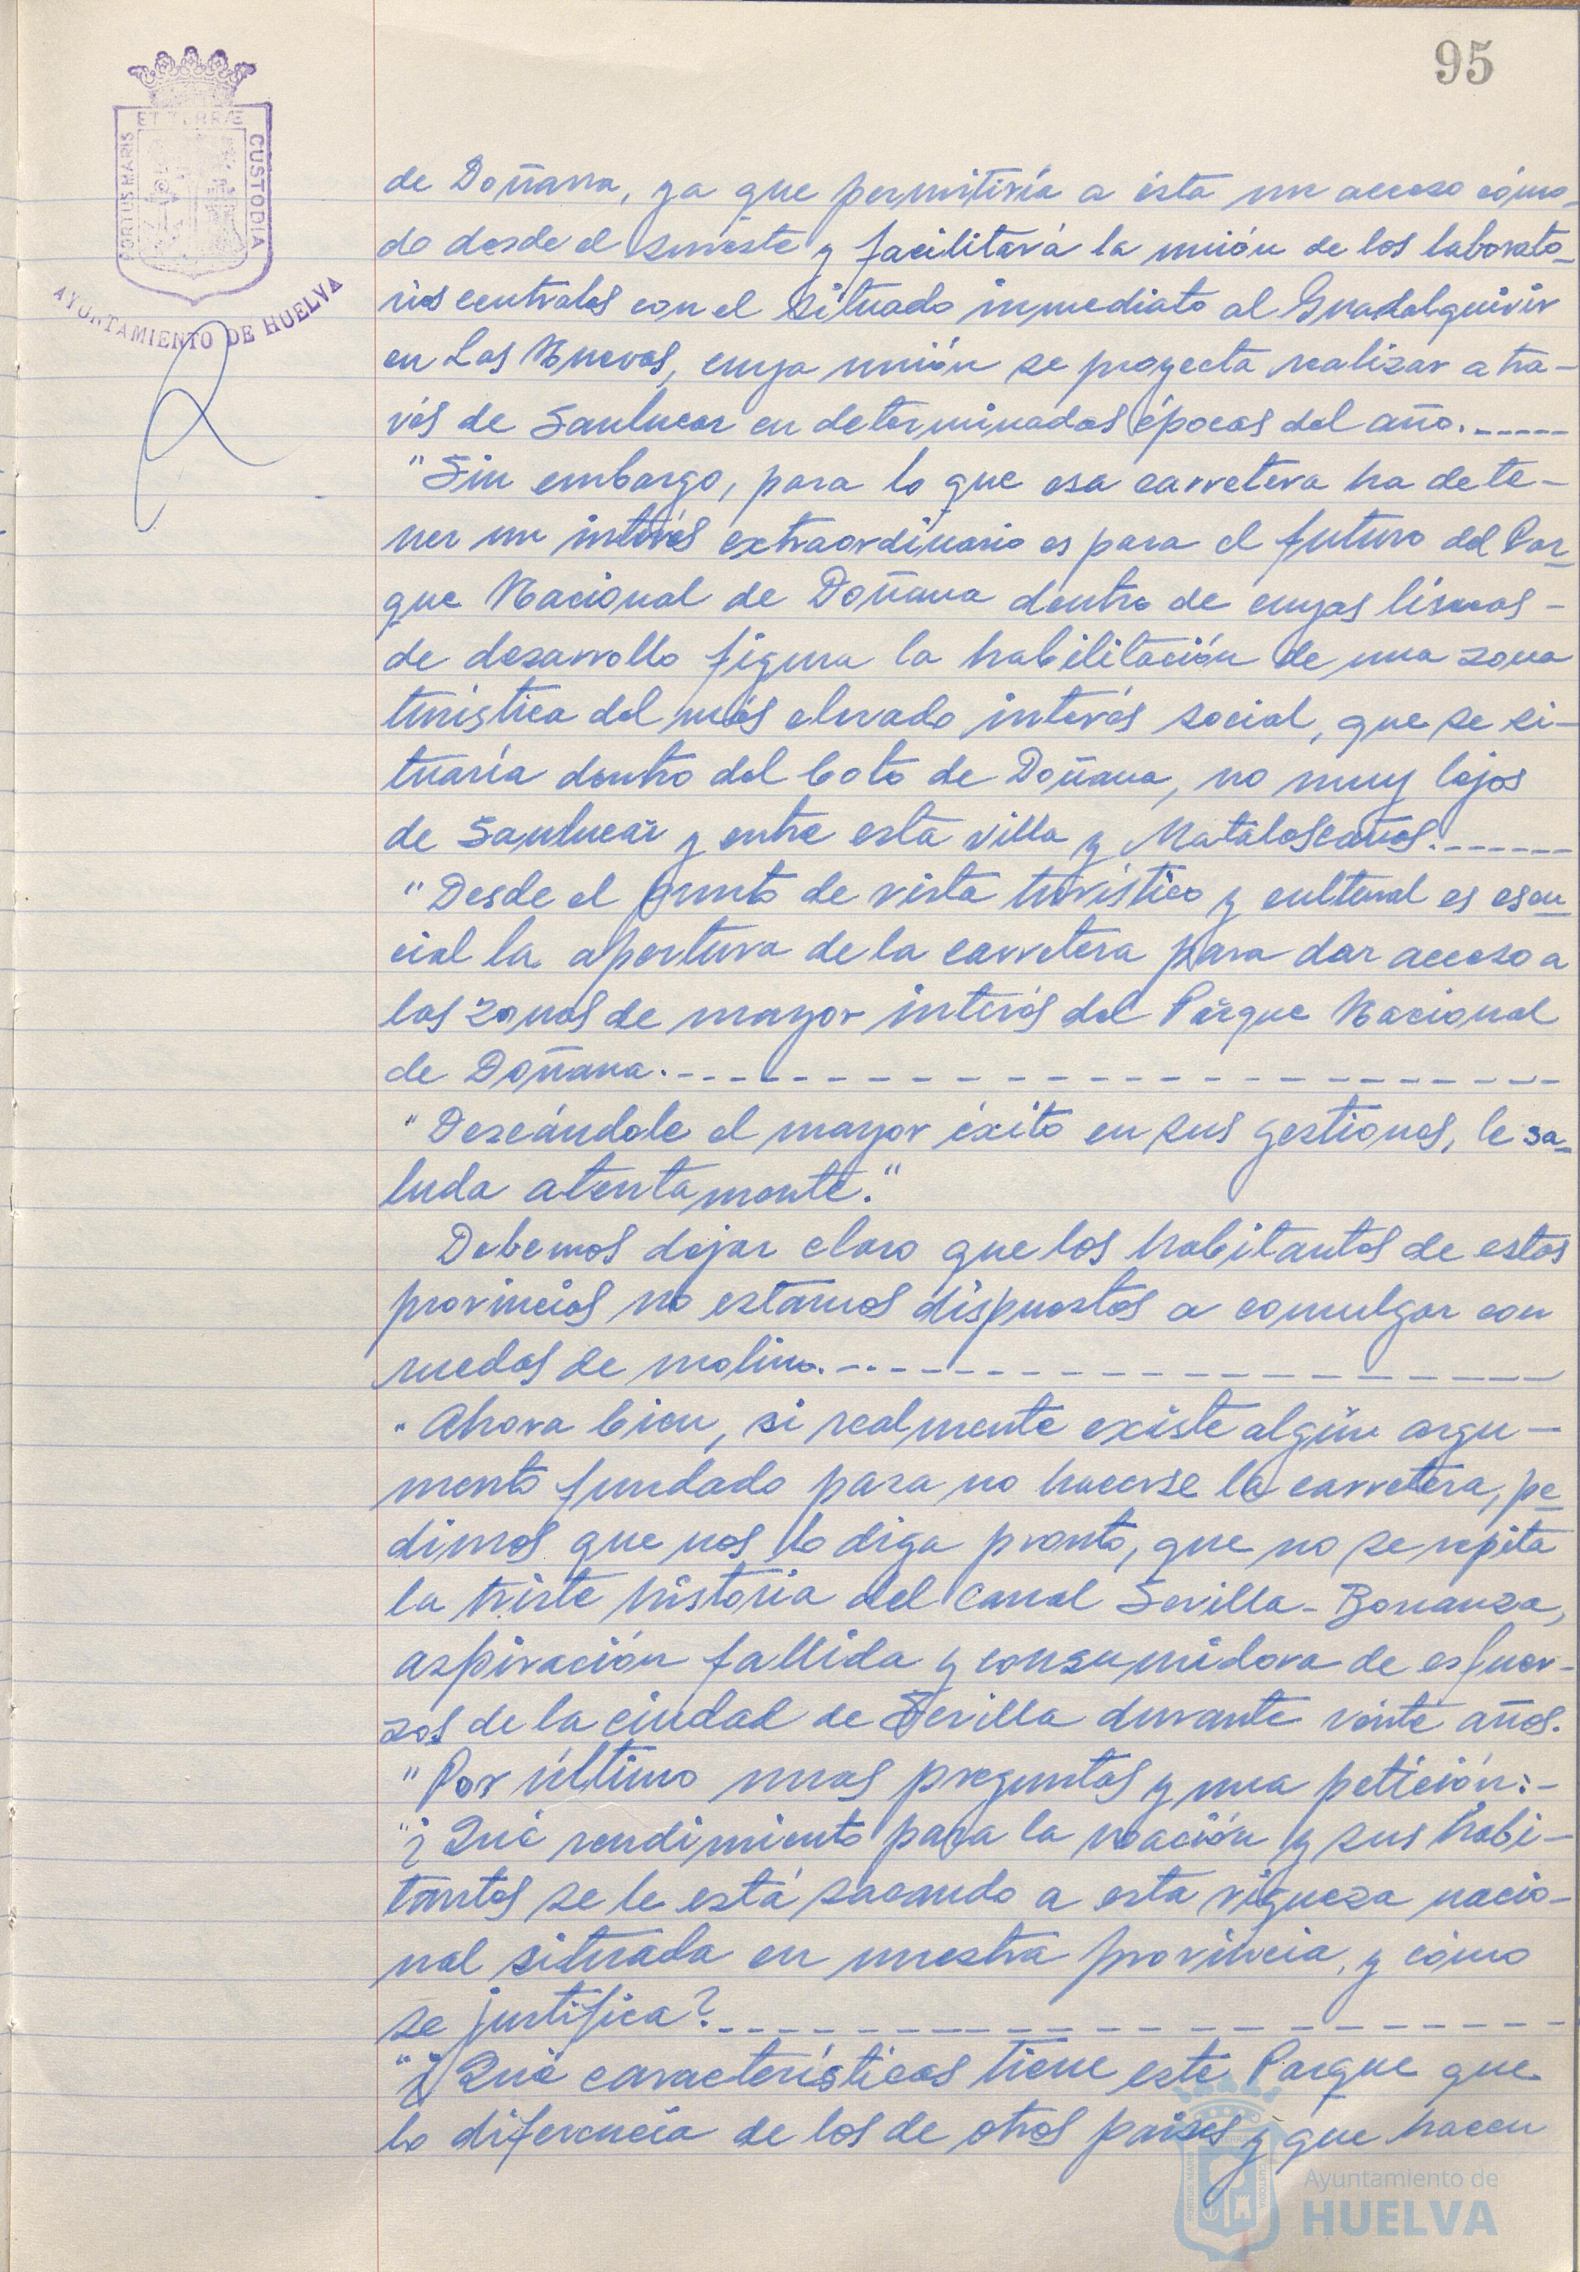 95
ET TERRÆ
PORTUS MARIS
CUSTODIA
AYUNTAMIENTO DE HUELVA
de Doñana, ya que permitiría a ésta un acceso cómo-
do desde el sureste y facilitará la unión de los laborato-
rios centrales con el situado inmediato al Guadalquivir
en Las Nuevas, cuya unión se proyecta realizar a tra-
vés de Sanlucar en determinadas épocas del año.-----
"Sin embargo, para lo que esa carretera ha de te-
ner un interés extraordinario es para el futuro del Par-
que Nacional de Doñana dentro de cuyas líneas -
de desarrollo figura la habilitación de una zona
turística del más elevado interés social, que se si-
tuaría dentro del Coto de Doñana, no muy lejos
de Sanlucar y entre esta villa y Matalascañas.------
"Desde el punto de vista turístico y cultural es esen-
cial la apertura de la carretera para dar acceso a
las zonas de mayor interés del Parque Nacional
de Doñana.- - - - - - - - - - - - - - - - - - -
"Deseándole el mayor éxito en sus gestiones, le sa-
luda atentamente."
Debemos dejar claro que los habitantes de estas
provincias no estamos dispuestos a comulgar con
ruedas de molino.- - - - - - - - - - - - - - -
"Ahora bien, si realmente existe algún argu-
mento fundado para no hacerse la carretera, pe-
dimos que nos lo diga pronto, que no se repita
la triste historia del Canal Sevilla-Bonanza,
aspiración fallida y consumidora de esfuer-
zos de la ciudad de Sevilla durante veinte años.
"Por último unas preguntas y una petición:-
"¿Qué rendimiento para la nación y sus habi-
tantes se le está sacando a esta riqueza nacio-
nal situada en nuestra provincia, y cómo
se justifica?- - - - - - - - - - - - - - - - -
"¿Qué características tiene este Parque que
lo diferencia de los de otros países y que hacen
Ayuntamiento de
HUELVA